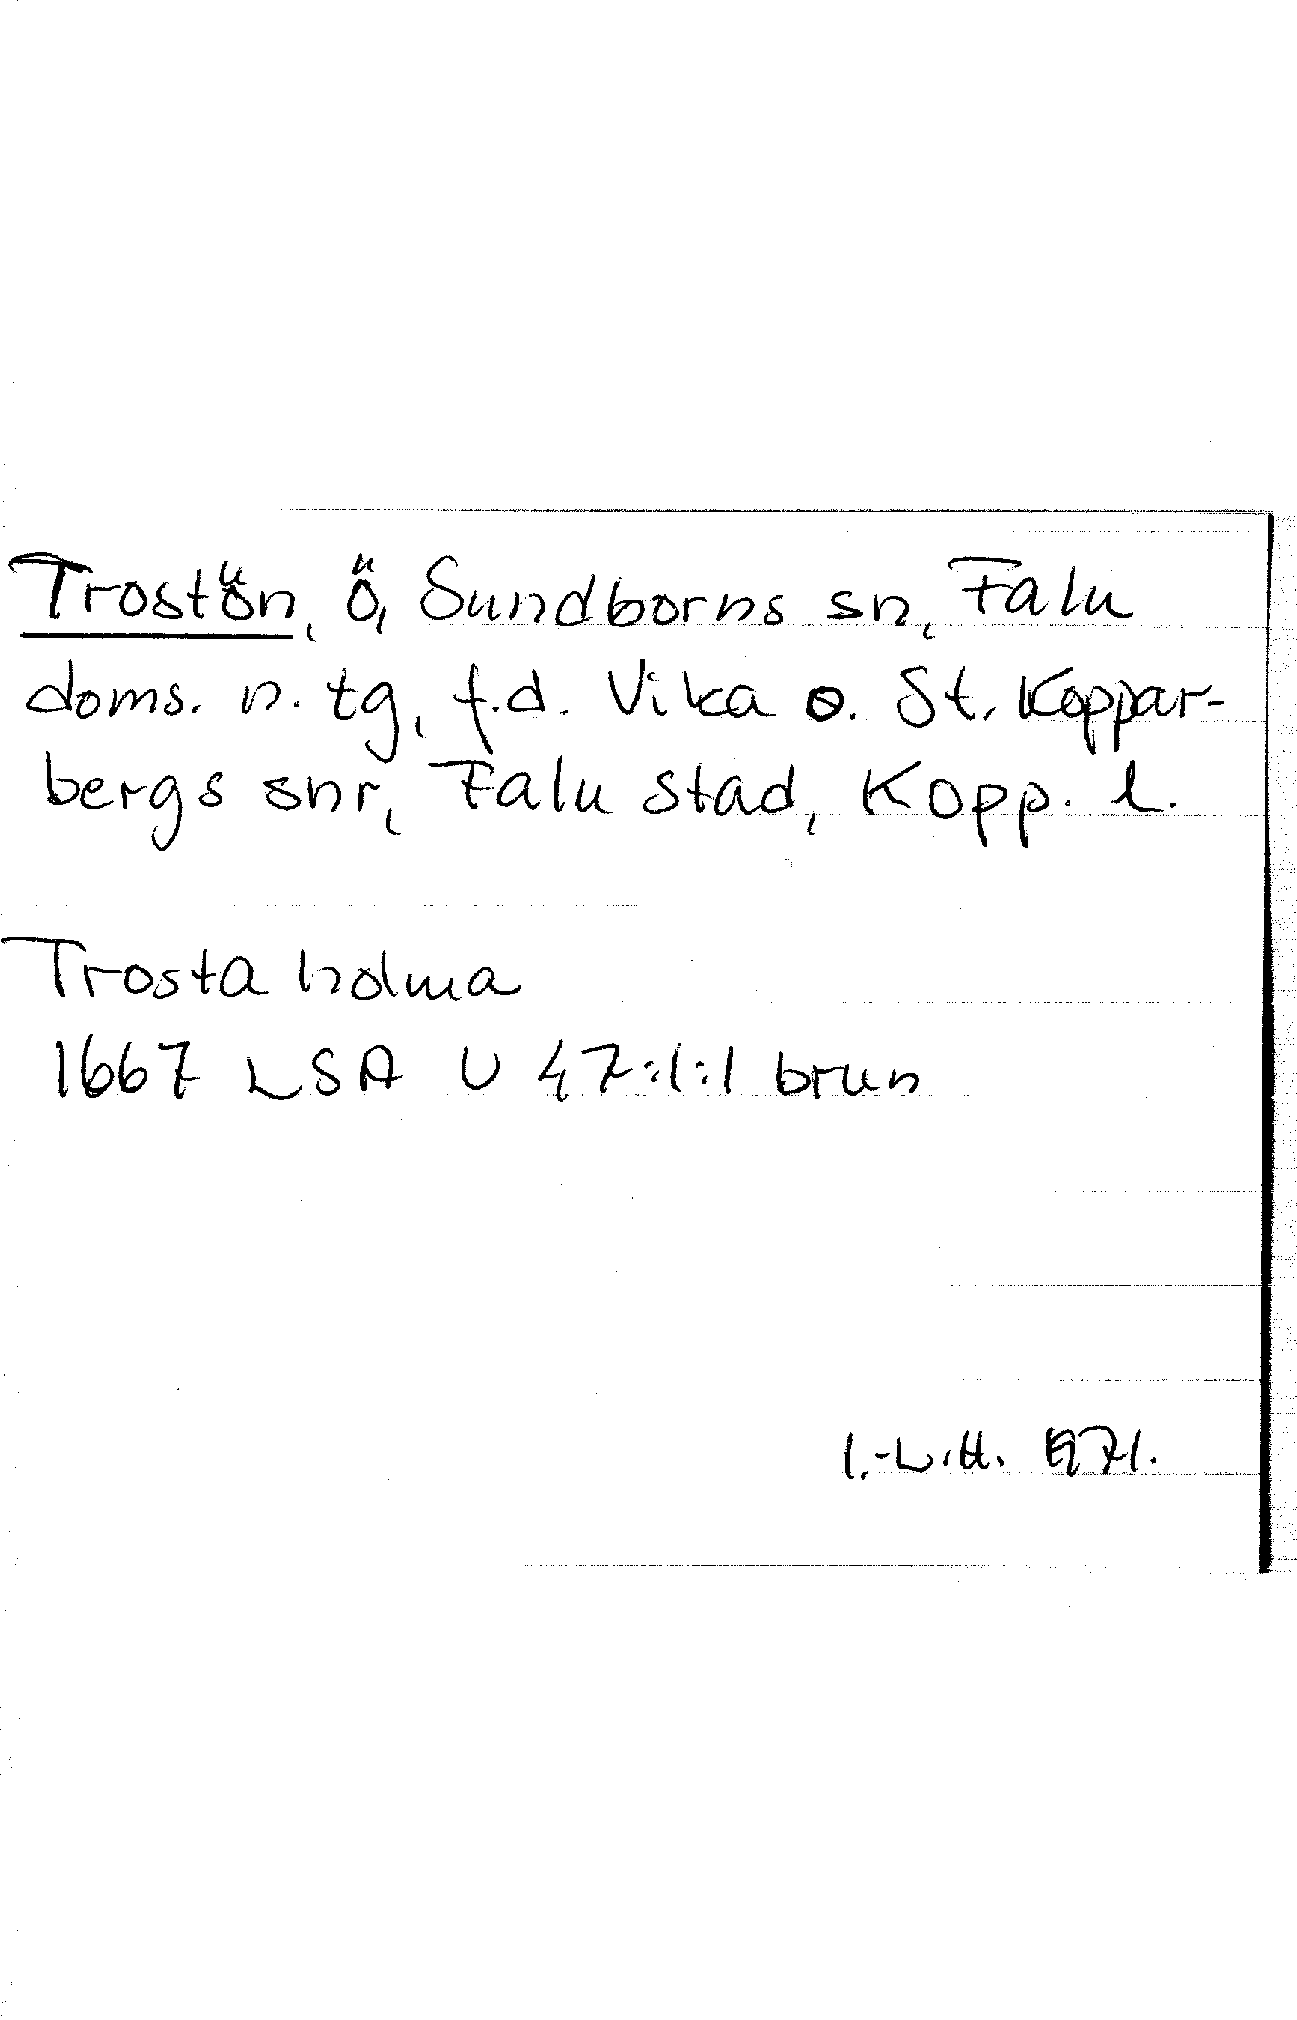 Trostön, ö, Sundborns sn, Falu
doms. n. tg, f.d. Vika o. St. Koppar-
bergs snr, Falu stad, Kopp. l.
Trosta holma
1667 LSA U 47:1:1 brun
I.-L.H. 1971.